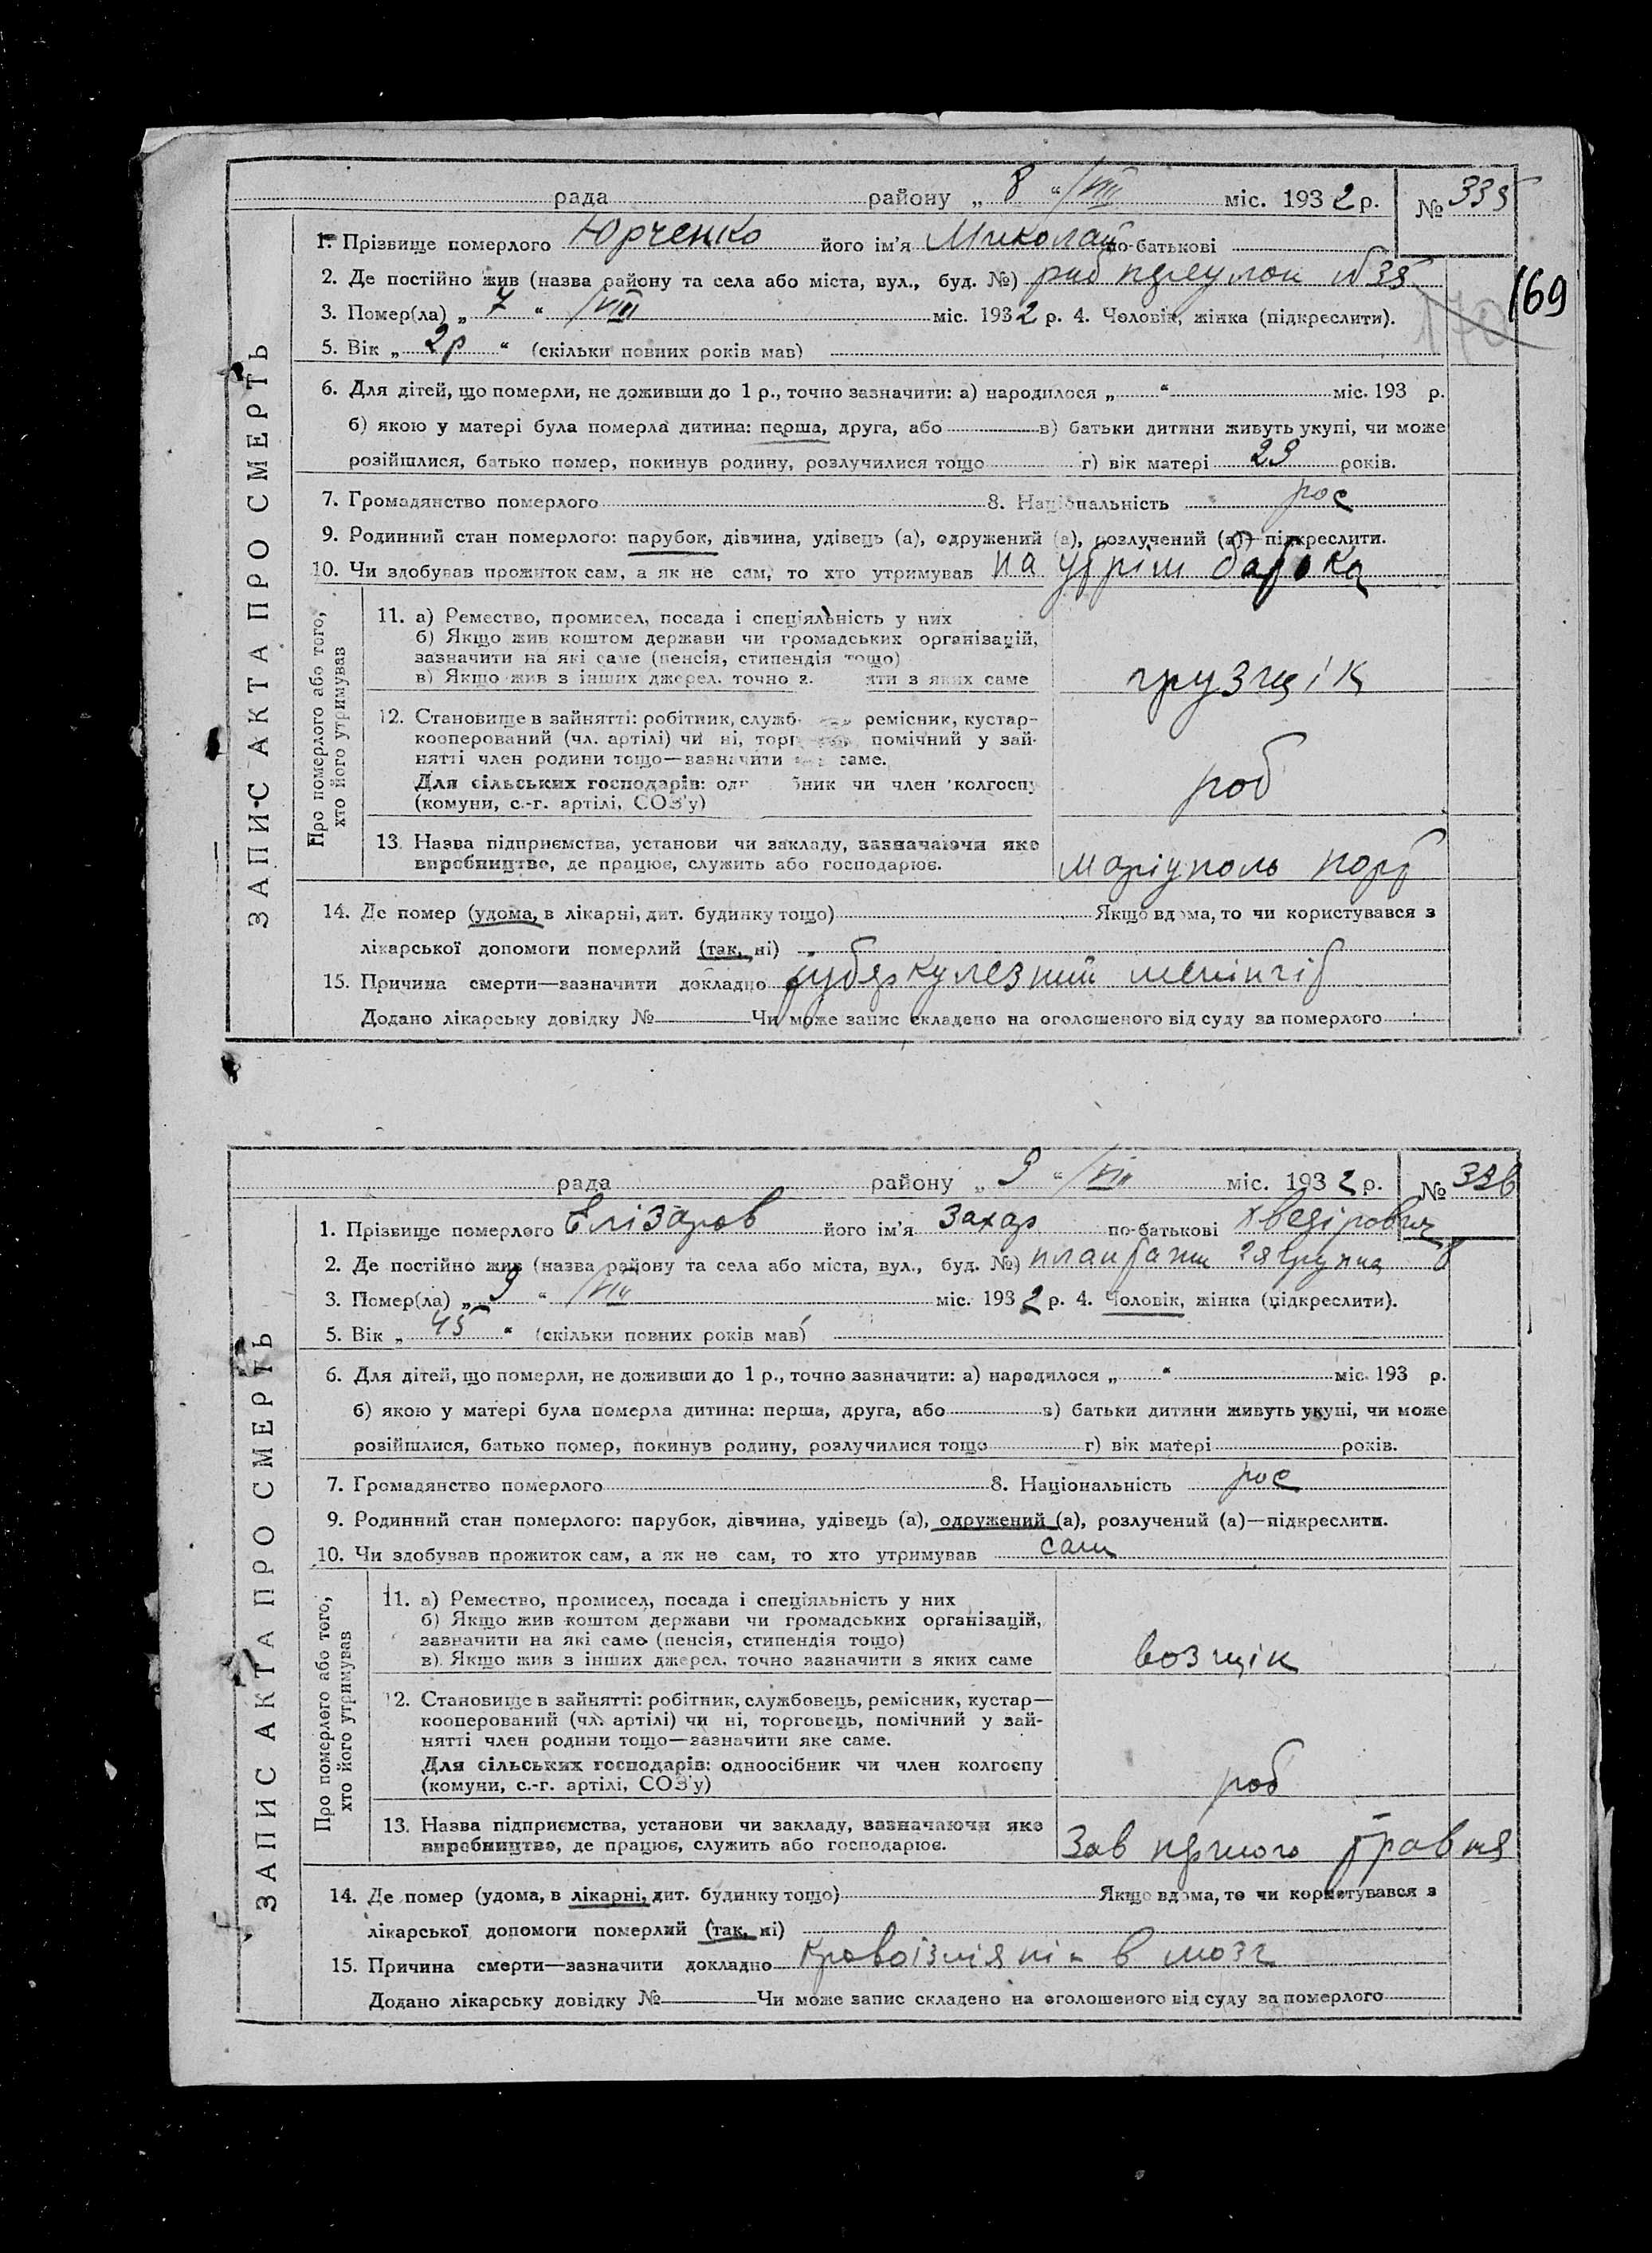 рада району „ 8 “ /VIII міс. 1932 р. № 335
1. Прізвище померлого Юрченко його ім'я Миколай по-батькові
2. Де постійно жив (назва району та села або міста, вул., буд. №) № 38
169
170
3. Помер(ла) „ 7 “ /VIII міс. 1932 р. 4. Чоловік, жінка (підкреслити).
5. Вік „ 2р “ (скільки повних років мав)
6. Для дітей, що померли, не доживши до 1 р., точно зазначити: а) народилося „ “ міс. 193 р.
б) якою у матері була померла дитина: перша, друга, або в) батьки дитини живуть укупі, чи може
розійшлися, батько помер, покинув родину, розлучилися тощо г) вік матері 23 років.
7. Громадянство померлого 8. Національність рос
9. Родинний стан померлого: парубок, дівчина, удівець (а), одружений (а), розлучений (а)—підкреслити.
10. Чи здобував прожиток сам, а як не сам, то хто утримував на утрім батька
ЗАПИС АКТА ПРО СМЕРТЬ
Про померлого або того,
хто його утримував
11. а) Ремество, промисел, посада і спеціяльність у них
б) Якщо жив коштом держави чи громадських організацій,
зазначити на які саме (пенсія, стипендія тощо)
в) Якщо жив з інших джерел, точно з яких саме
грузщік
12. Становище в зайнятті: робітник, служб ремісник, кустар-
кооперований (чл. артілі) чи ні, торг помічний у зай-
нятті член родини тощо—зазначити саме.
Для сільських господарів: од бник чи член колгоспу
(комуни, с.-г. артілі, СОЗ'у)
роб
13. Назва підприємства, установи чи закладу, зазначаючи яке
виробництво, де працює, служить або господарює.
Маріуполь порт
14. Де помер (удома, в лікарні, дит. будинку тощо) Якщо вдома, то чи користувався з
лікарської допомоги померлий (так, ні)
15. Причина смерти—зазначити докладно туберкулезний менінгіт
Додано лікарську довідку № Чи може запис складено на оголошеного від суду за померлого
рада району „ 9 “ /VIII міс. 1932 р. № 336
1. Прізвище померлого Елізаров його ім'я Захар по-батькові Хведірович
2. Де постійно жив (назва району та села або міста, вул., буд. №) 8
3. Помер(ла) „ 9 “ /VIII міс. 1932 р. 4. Чоловік, жінка (підкреслити).
5. Вік „ 45 “ (скільки повних років мав)
6. Для дітей, що померли, не доживши до 1 р., точно зазначити: а) народилося „ “ міс. 193 р.
б) якою у матері була померла дитина: перша, друга, або в) батьки дитини живуть укупі, чи може
розійшлися, батько помер, покинув родину, розлучилися тощо г) вік матері років.
7. Громадянство померлого 8. Національність рос
9. Родинний стан померлого: парубок, дівчина, удівець (а), одружений (а), розлучений (а)—підкреслити.
10. Чи здобував прожиток сам, а як не сам, то хто утримував сам
ЗАПИС АКТА ПРО СМЕРТЬ
Про померлого або того,
хто його утримував
11. а) Ремество, промисел, посада і спеціяльність у них
б) Якщо жив коштом держави чи громадських організацій,
зазначити на які саме (пенсія, стипендія тощо)
в) Якщо жив з інших джерел, точно зазначити з яких саме
возчік
12. Становище в зайнятті: робітник, службовець, ремісник, кустар—
кооперований (чл. артілі) чи ні, торговець, помічний у зай-
нятті член родини тощо—зазначити яке саме.
Для сільських господарів: одноосібник чи член колгоспу
(комуни, с.-г. артілі, СОЗ'у)
роб
13. Назва підприємства, установи чи закладу, зазначаючи яке
виробництво, де працює, служить або господарює.
Зав першого травня
14. Де помер (удома, в лікарні, дит. будинку тощо) Якщо вдома, то чи користувався з
лікарської допомоги померлий (так, ні)
15. Причина смерти—зазначити докладно кровоізліяніе в мозг
Додано лікарську довідку № Чи може запис складено на оголошеного від суду за померлого